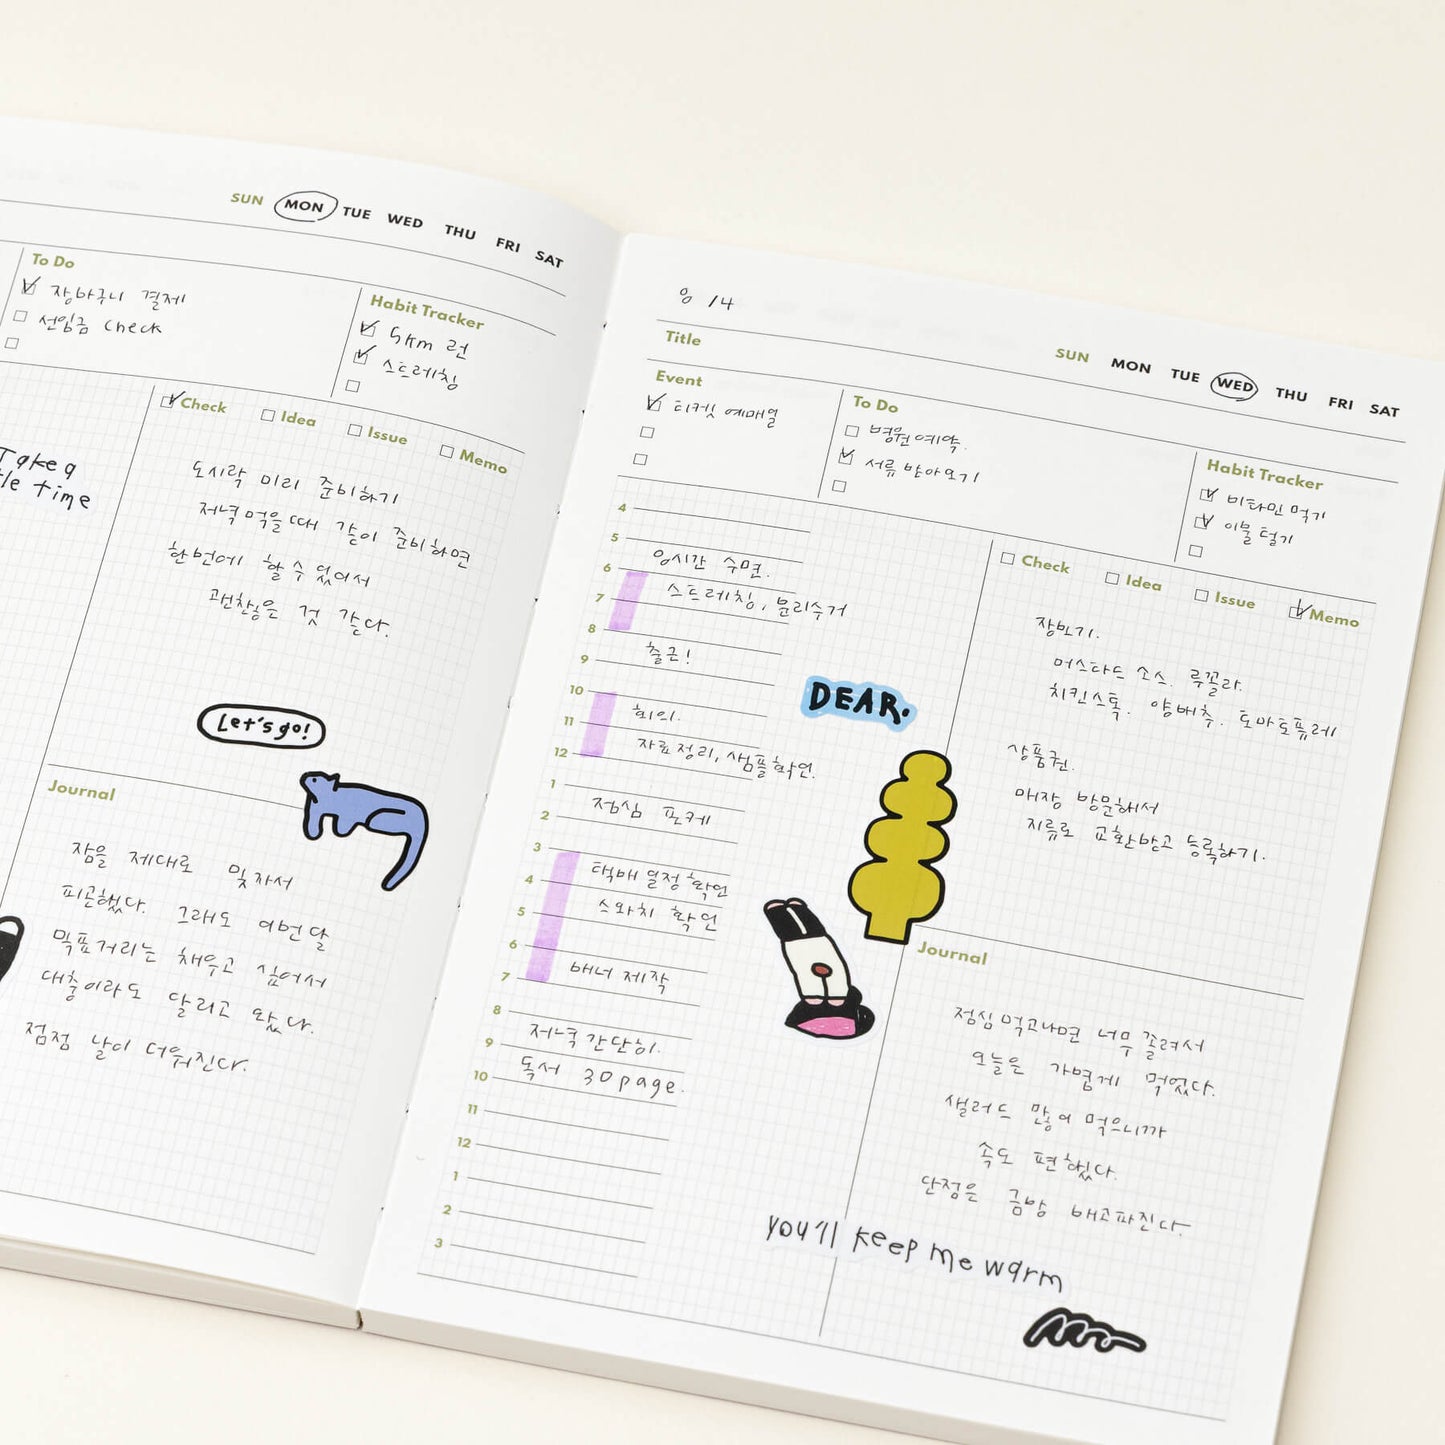 SUN MON TUE WED THU FRI SAT
To Do
장바구니 결제
선입금 check
Habit Tracker
5km 런
스트레칭
Take a
time
Check Idea Issue Memo
도시락 미리 준비하기
저녁 먹을 때 같이 준비하면
한번에 할 수 있어서
괜찮은 것 같다.
Let's go!
Journal
잠을 제대로 못자서
피곤했다. 그래도 이번 달
목표거리는 채우고 싶어서
대충이라도 달리고 왔다.
점점 날이 더워진다.
8 /4
Title
SUN MON TUE WED THU FRI SAT
Event
티켓 예매일
To Do
병원 예약.
서류 받아오기
Habit Tracker
비타민 먹기
이불 털기
4
5
8시간 수면.
6
스트레칭, 분리수거
7
8
출근!
9
10
회의.
11
자료정리, 샘플확인.
12
1
점심 포케
2
3
택배 일정 확인
4
스와치 확인
5
6
배너 제작
7
8
저녁 간단히.
9
독서 30page.
10
11
12
1
2
3
DEAR.
Check Idea Issue Memo
장보기.
머스타드 소스. 루꼴라.
치킨스톡. 양배추. 토마토퓨레
상품권.
매장 방문해서
지류로 교환받고 등록하기.
Journal
점심 먹고나면 너무 졸려서
오늘은 가볍게 먹었다.
샐러드 많이 먹으니까
속도 편했다.
단점은 금방 배고파진다.
you'll keep me warm